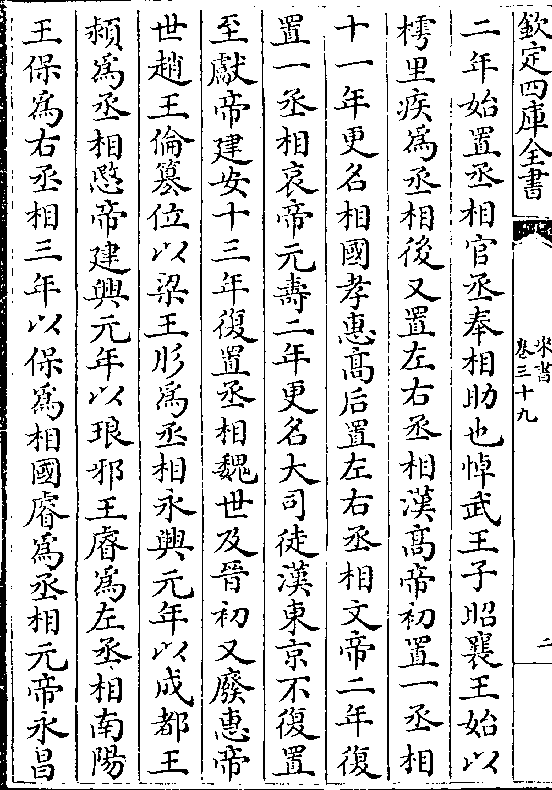 欽定四庫全書
宋書
卷三十九
二
二年始置丞相官丞奉相助也悼武王子昭襄王始以
樗里疾為丞相後又置左右丞相漢髙帝初置一丞相
十一年更名相國孝惠髙后置左右丞相文帝二年復
置一丞相哀帝元壽二年更名大司徒漢東京不復置
至獻帝建安十三年復置丞相魏世及晉初又廢惠帝
世趙王倫簒位以梁王肜為丞相永興元年以成都王
頴為丞相愍帝建興元年以琅邪王睿為左丞相南陽
王保為右丞相三年以保為相國睿為丞相元帝永昌